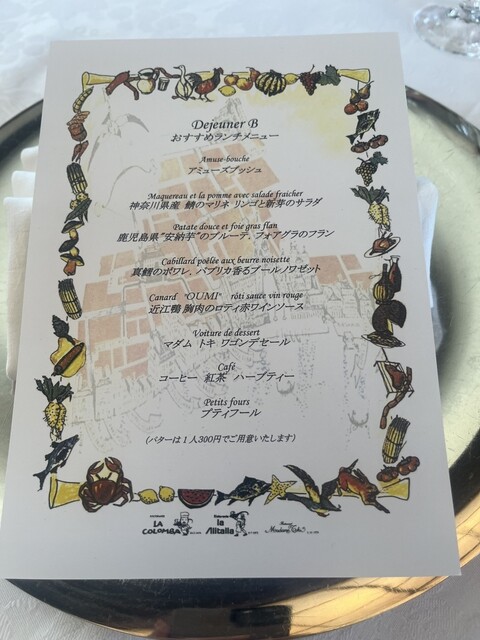 Dejeuner B
おすすめランチメニュー
Amuse-bouche
アミューズブッシュ
Maquereau et la pomme avec salade fraicher
神奈川県産 鯖のマリネ リンゴと新芽のサラダ
Patate douce et foie gras flan
鹿児島県"安納芋"のブルーテ、フォアグラのフラン
Cabillard poëlée aux beurre noisette
真鱈のポワレ、パプリカ香るブールノワゼット
Canard "OUMI" rôti sauce vin rouge
近江鴨 胸肉のロティ赤ワインソース
Voiture de dessert
マダム トキ ワゴンデセール
Café
コーヒー 紅茶 ハーブティー
Petits fours
プティフール
（バターは１人300円でご用意いたします）
LA COLOMBA
la Alitalia
Madame Toki